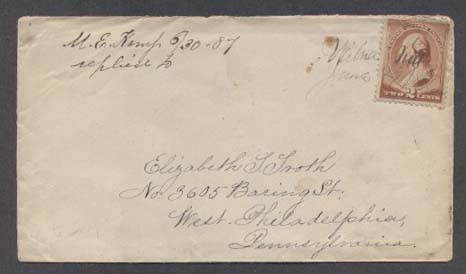 M. E. Kemp 6/30-87
replied to
June
Elizabeth T. Troth
No. 3605 Baring St.,
West Philadelphia,
Pennsylvania.
TWO 2 CENTS